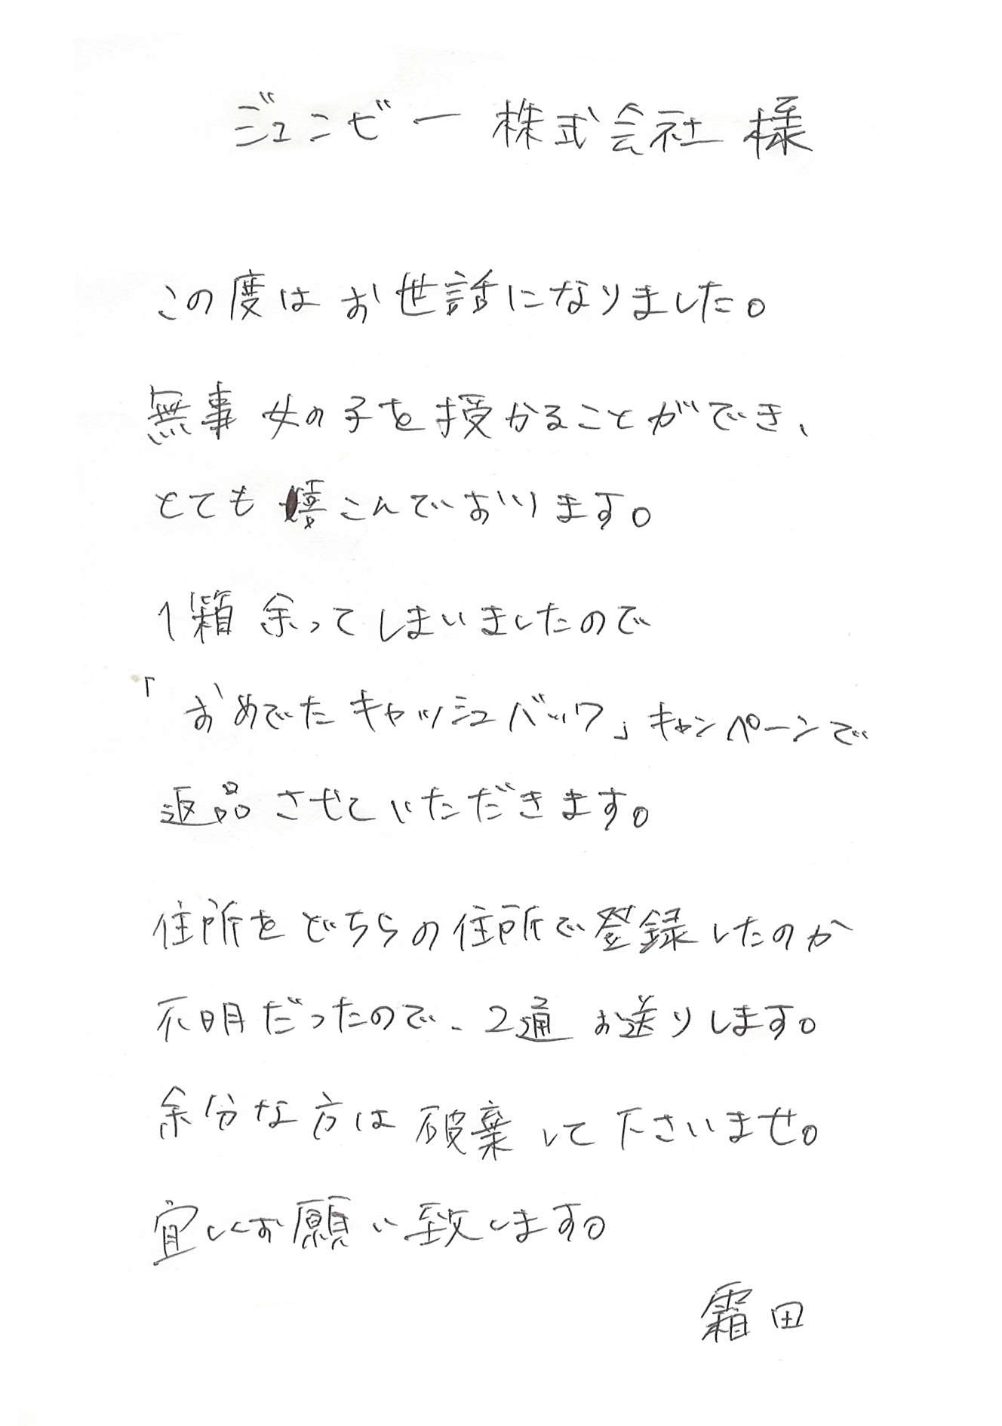 ジュンビー株式会社 様
この度は お世話になりました。
無事 女の子を授かることができ、
とても 嬉こんでおります。
1箱 余ってしまいましたので
「おめでたキャッシュバック」キャンペーンで
返品させていただきます。
住所をどちらの住所で登録したのか
不明だったので、2通 お送りします。
余分な方は 破棄して下さいませ。
宜しくお願い致します。
霜田